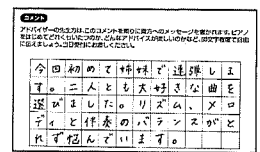 コメント
アドバイザーの先生方は、このコメントを頼りに貴方へのメッセージを書かれます。ピアノ
をはじめてどれくらいたつのか、どんなアドバイスが欲しいのかなど、50文字程度で自由
に伝えましょう。当日受付にお渡しください。
今回初めて姉妹で連弾しま
す。二人とも大好きな曲を
選びました。リズム、メロ
ディと伴奏のバランスがと
れず悩んでいます。